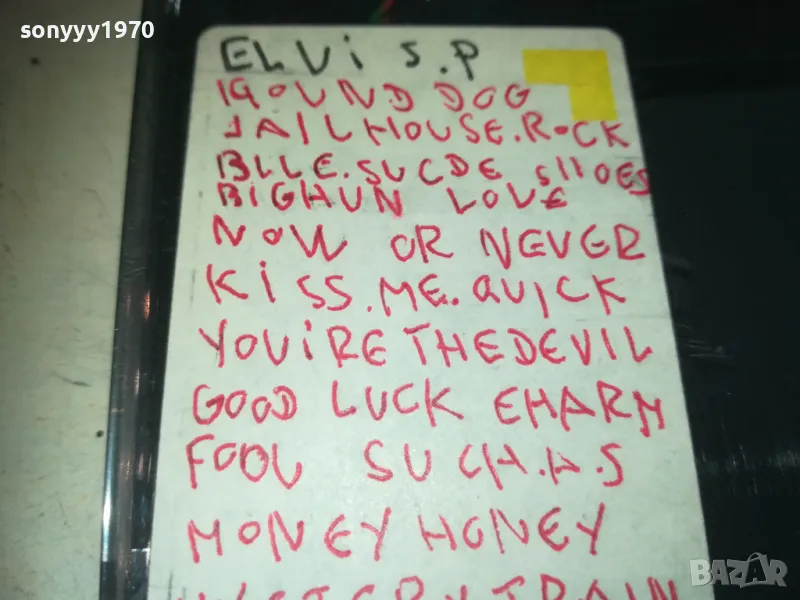 sonyyy1970
ELViS.P
HOUND DOG
JAILHOUSE.ROCK
BLLE.SUCDE SHOES
BIGHUN LOVE
NOW OR NEVER
KiSS.ME.QUICK
YOUiRE THEDEVIL
GOOD LUCK EHARM
FOOL SUCH.A.S
MONEY HONEY
TRAIN
BAZAR